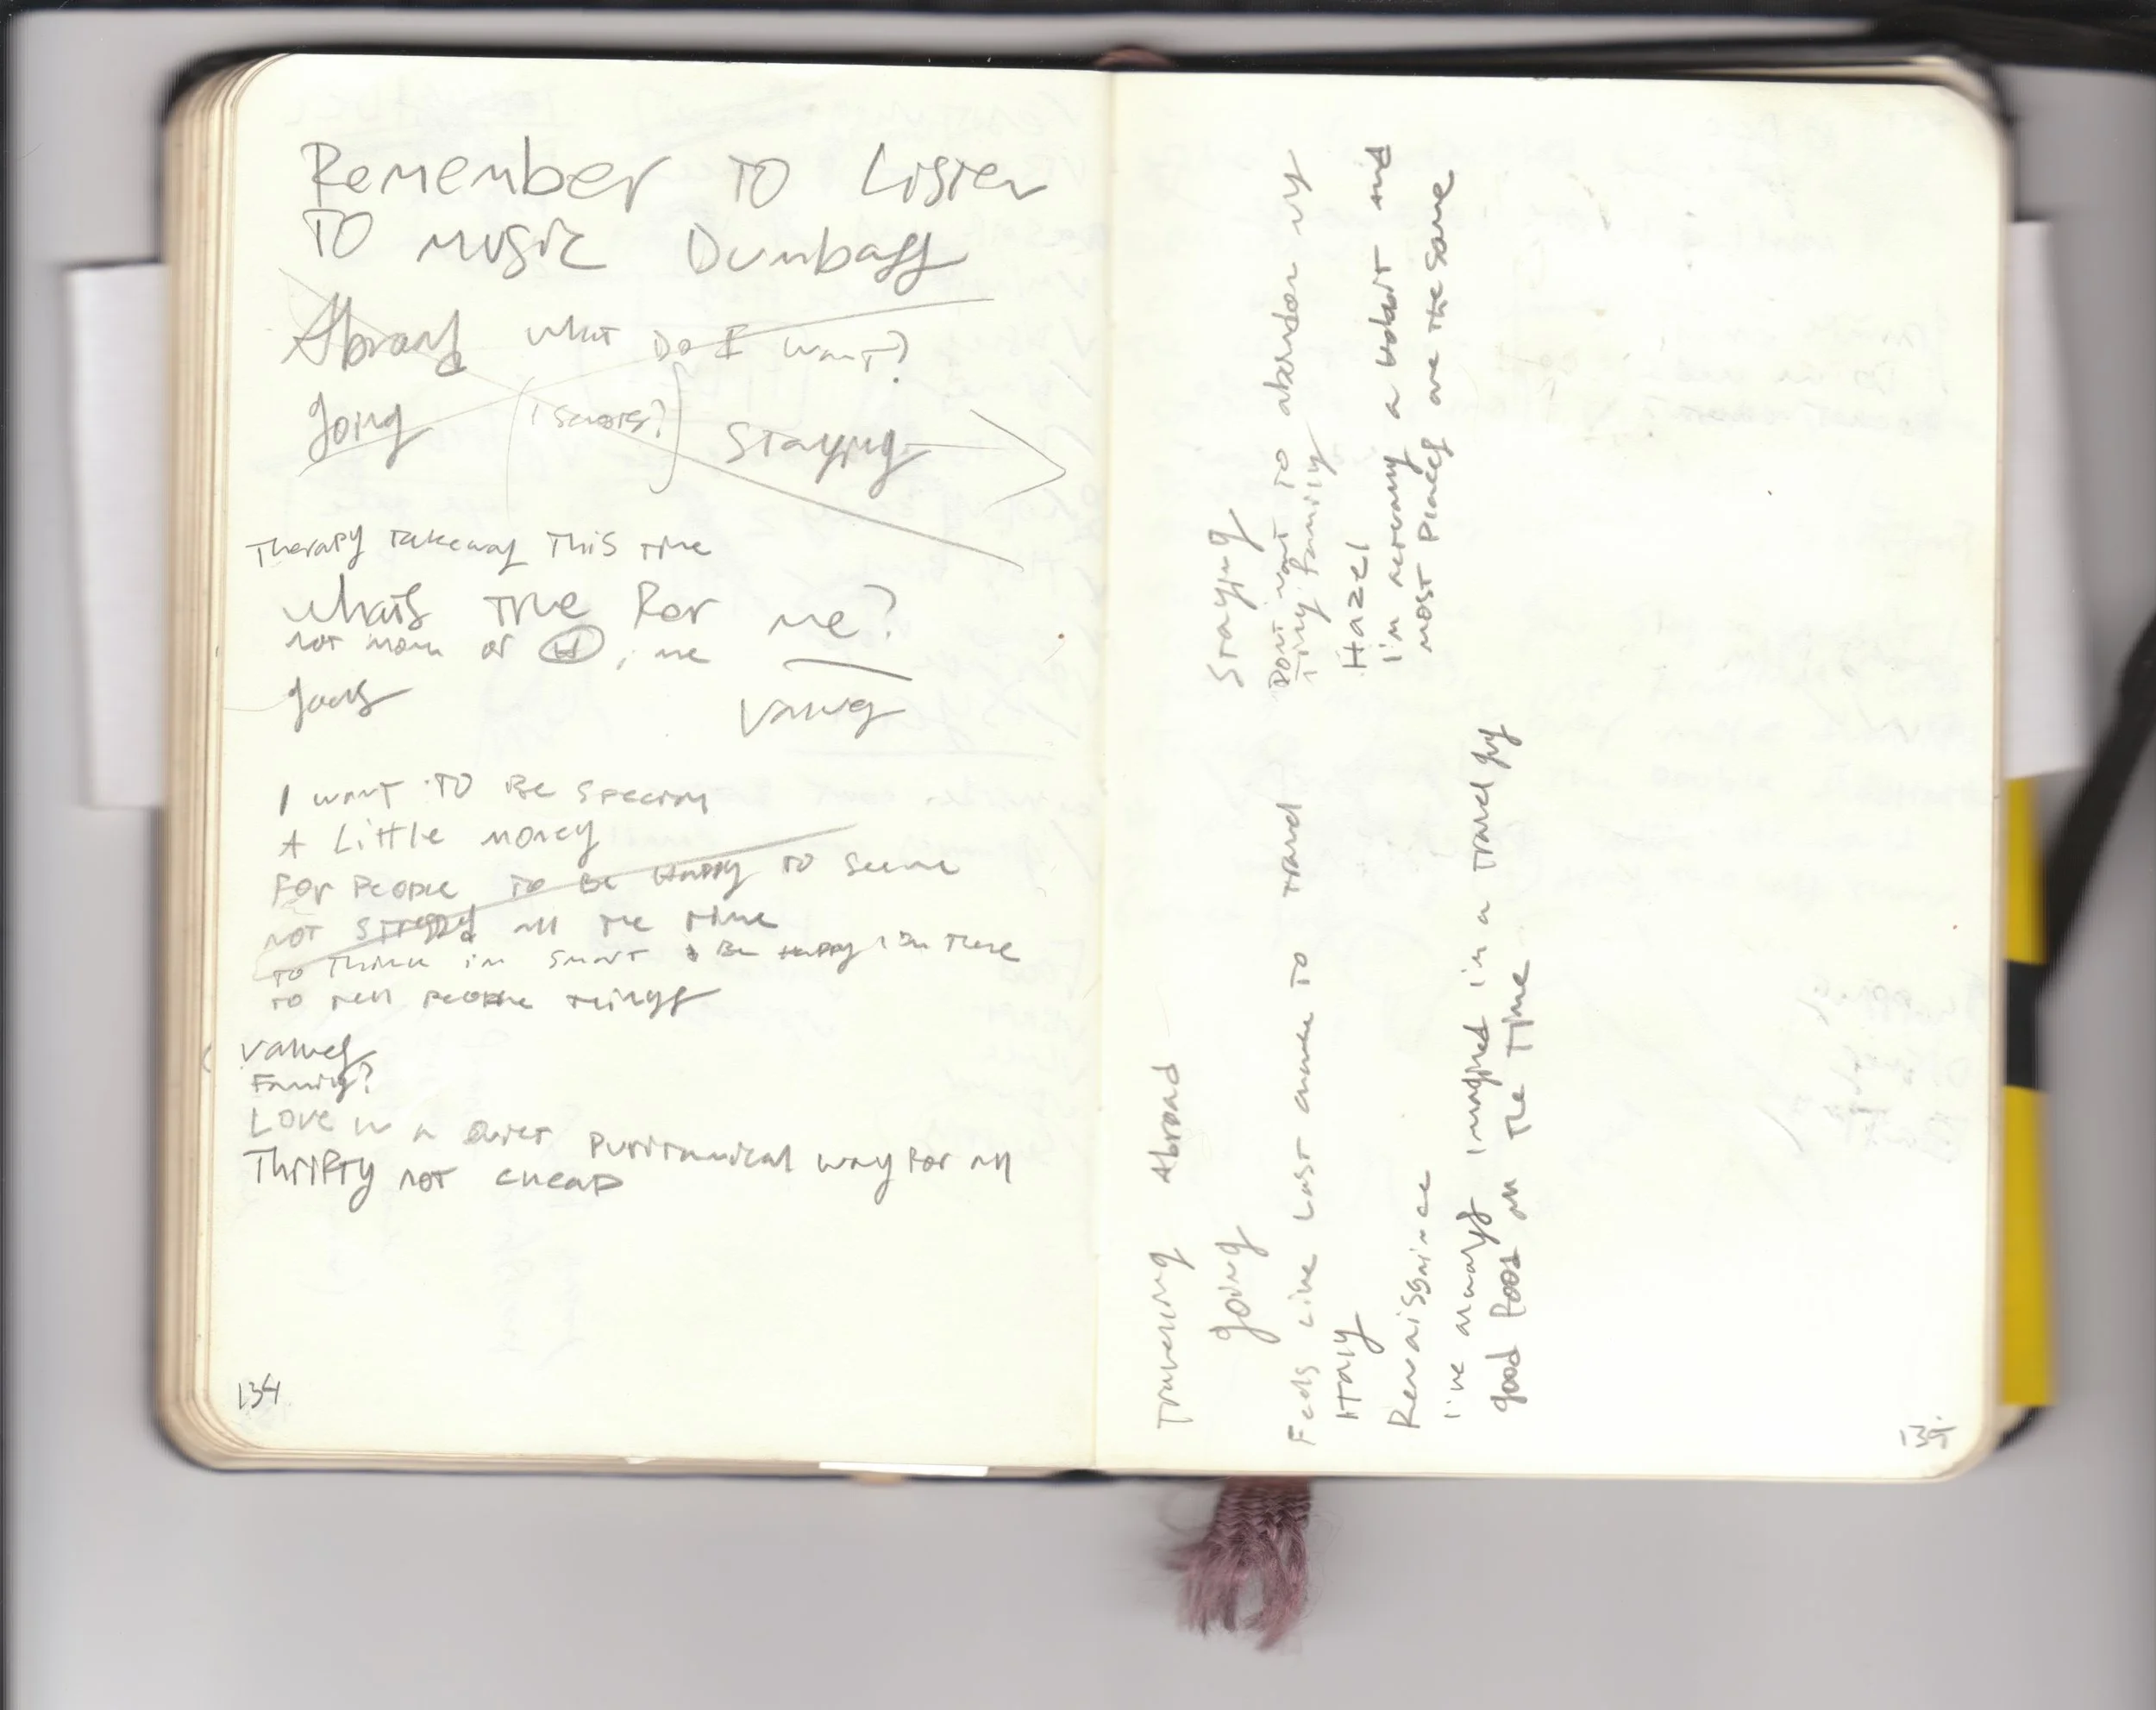 Remember To Listen
To music Dumbass
Abroad what Do I want?
going (1 semester?) Staying
Therapy takeaway This time
whats True for me?
not mom or H, me
goals values
I want To Be special
A Little money
For People To Be Happy To seem
not stressed all the time
To think im smart & Be Happy im there
To tell people things
values
Family?
Love in a quiet puritanical way for all
Thrifty not cheap
134
Traveling Abroad
going
Feels Like Last chance To travel
Italy
Renaissaince
I've always imagined im a travel guy
good food all the time
Staying
Dont want To abandon my
Tiny family
Hazel
I'm actually a hobbit and
most places are the same
135